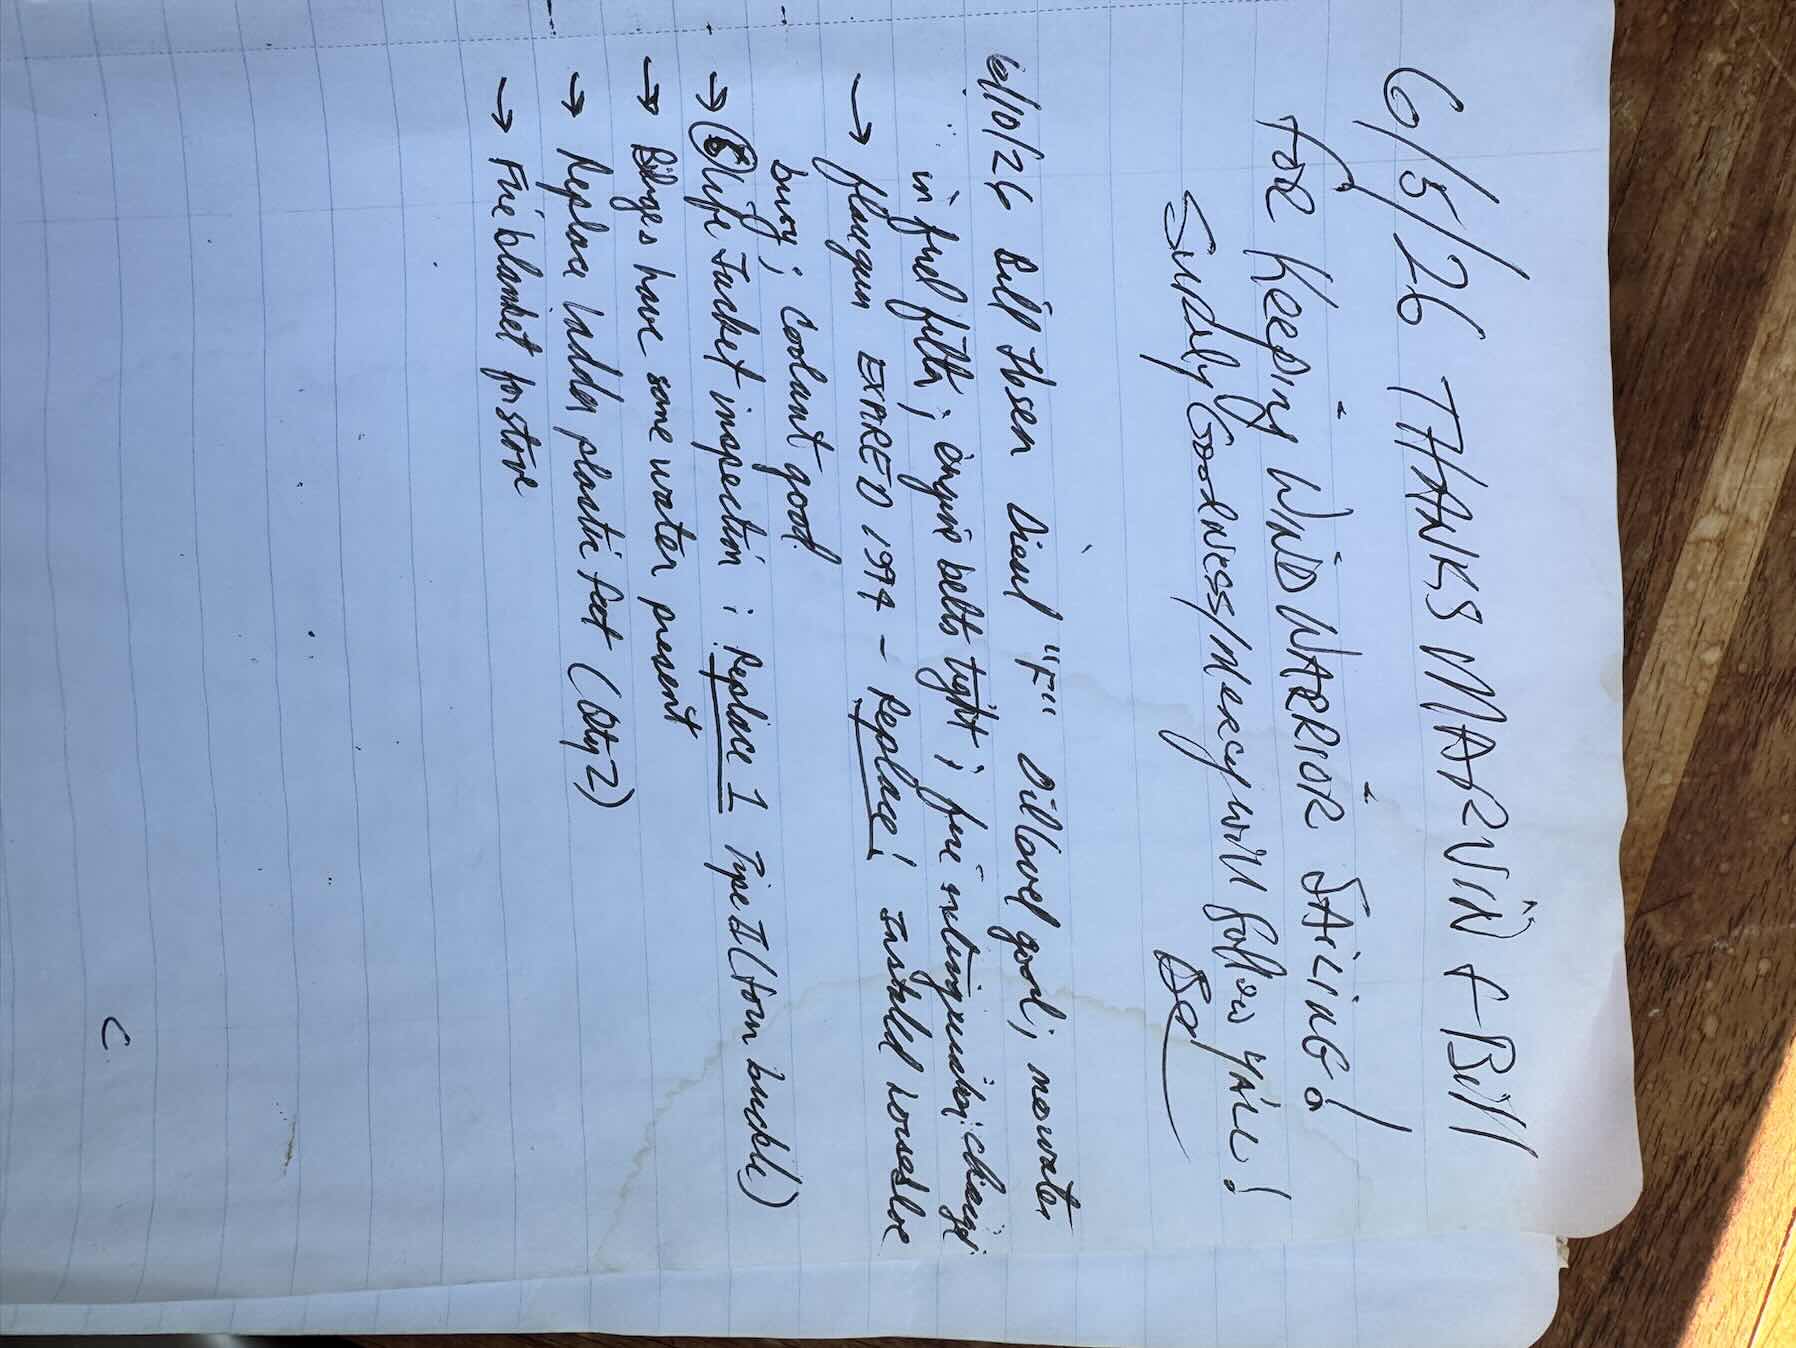 6/5/26 THANKS MARVIN + Bill
FOR KEEPING WIND WARRIOR SAILING!
SURELY GOODNESS/MERCY will follow YA'LL!
6/10/26 Bill Ibsen Diesel "F" Oil level good; no water
in fuel filter; engine belts tight; fire extinguisher: charged;
→ flaregun EXPIRED 1994 - Replace! Install horseshoe
buoy; Coolant good.
→ Life Jacket inspection: Replace 1 Type II (torn buckle)
→ Bilges have some water present
→ Replace ladder plastic feet (Qty 2)
→ Fire blanket for stove